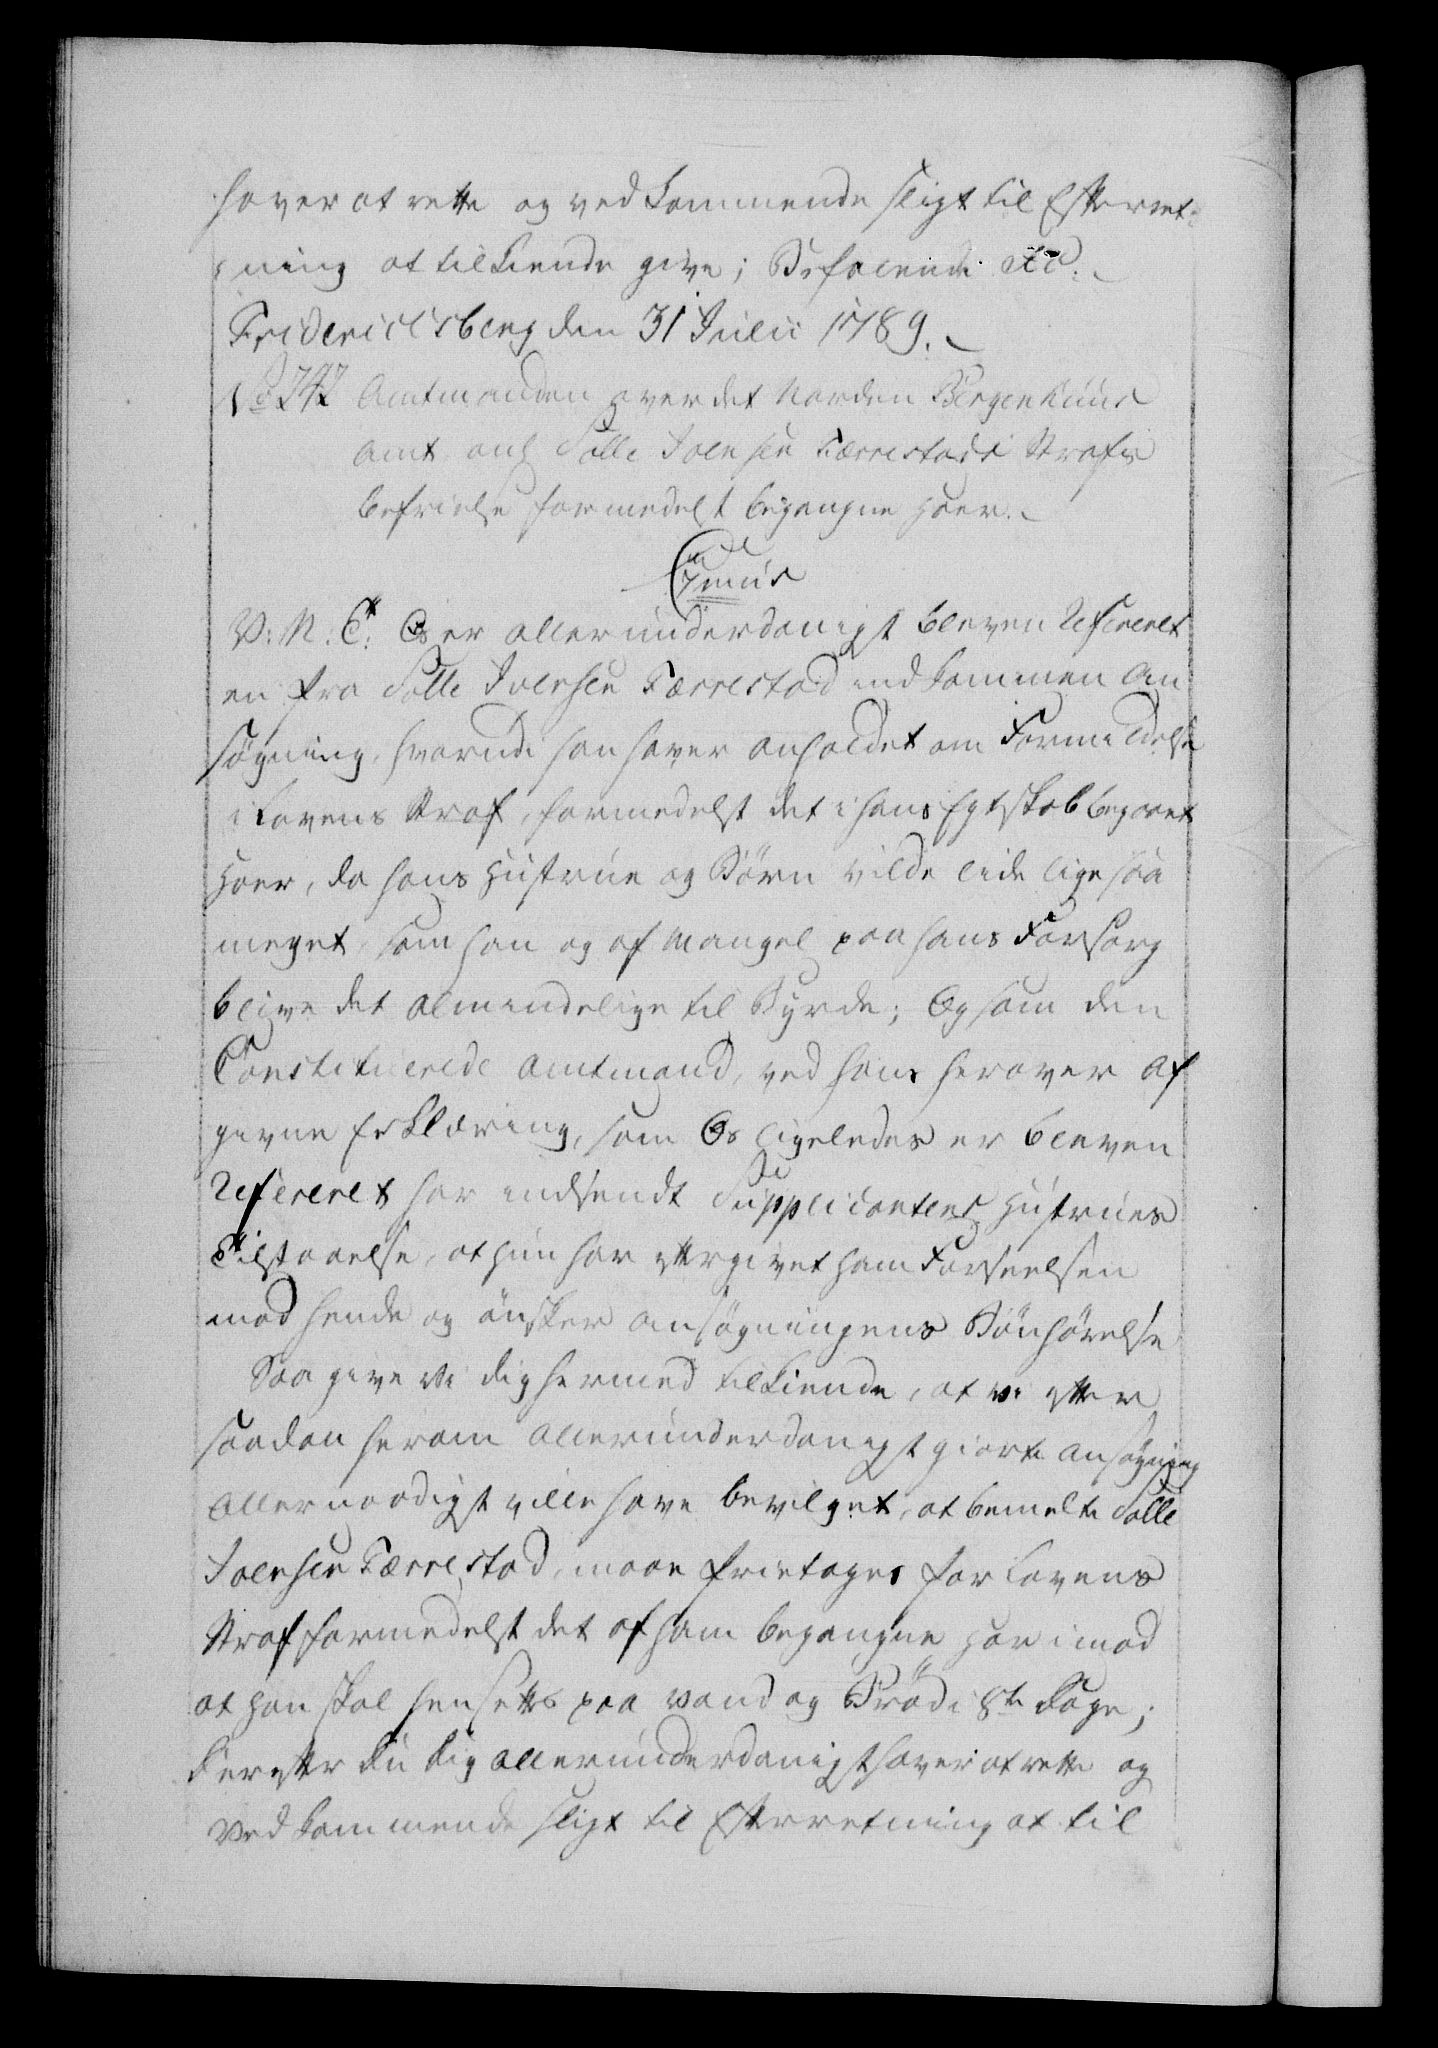 haver at rette og vedkommende sligt til Efterret-
ning at tilkiende give; Befalende etc.
Friderichsberg den 31 Julii 1789.
No 747 Amtmanden over det Norden Bergenhuus
Amt ang Salle Joensen Færrestads Straffs
befrielse formedelst begangne Hoer.
C 7mus
V: N: T: Os er allerunderdanigst bleven Refereret
en fra Salle Joensen Færrestad indkommen An
søgning, hvorudi han haver anholdet om Formildelse
i Lovens Straf, formedelst det i hans Egteskab begaaet
Hoer, da hans Hustrue og Børn vilde lide ligesaa
meget, som han og af Mangel paa hans Forsorg
blive det almindelige til Byrde; Og som den
Constituerede Amtmand, ved hans herover af
givne Erklæring, som Os ligeledes er bleven
Refereret har indsendt Supplicantens Hustrues
Tilstaaelse, at hun har eftergivet ham Forseelsen
mod hende og ønsker Ansøgningens Bønhørelse
Saa give Vi dig hermed tilkiende, at vi efter
saadan herom allerunderdanigst giorte Ansøgning
Allernaadigst ville have bevilget, at bemelte Salle
Joensen Færrestad, maae fritages for Lovens
Straf formedelst det af ham begangne Hor imod
at han skal hensettes paa Vand og Brød i 8te Dage;
Derefter du dig allerunderdanigst haver at rette og
Vedkommende sligt til Efterretning at til